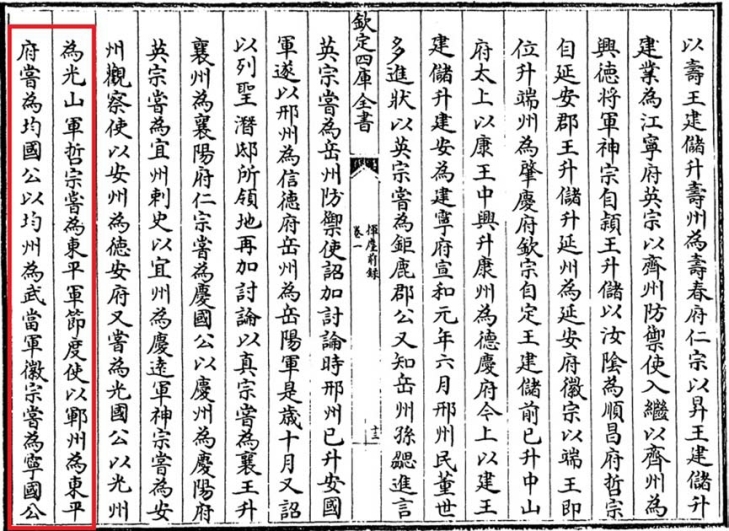 以壽王建儲升壽州為壽春府仁宗以昇王建儲升
建業為江寧府英宗以齊州防禦使入繼以齊州為
興德將軍神宗自潁王升儲以汝陰為順昌府哲宗
自延安郡王升儲升延州為延安府徽宗以端王即
位升端州為肇慶府欽宗自定王建儲前已升中山
府太上以康王中興升康州為德慶府今上以建王
建儲升建安為建寧府宣和元年六月邢州民董世
多進狀以英宗嘗為鉅鹿郡公又知岳州孫勰進言
欽定四庫全書
揮麈前錄
卷一
十三
英宗嘗為岳州防禦使詔加討論時邢州已升安國
軍遂以邢州為信德府岳州為岳陽軍是歲十月又詔
以列聖潛邸所領地再加討論以真宗嘗為襄王升
襄州為襄陽府仁宗嘗為慶國公以慶州為慶陽府
英宗嘗為宜州刺史以宜州為慶遠軍神宗嘗為安
州觀察使以安州為德安府又嘗為光國公以光州
為光山軍哲宗嘗為東平軍節度使以鄆州為東平
府嘗為均國公以均州為武當軍徽宗嘗為寧國公